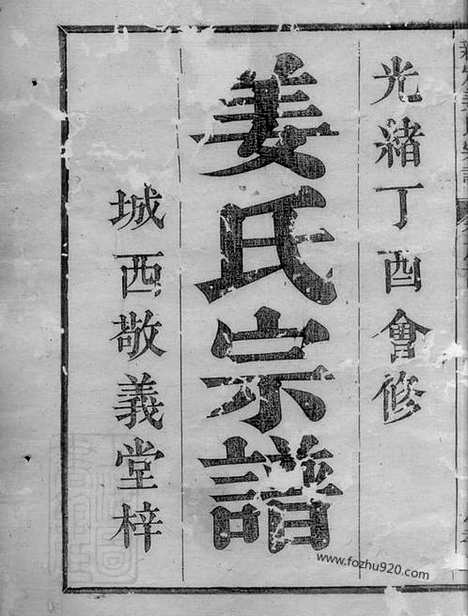 光緒丁酉會修
姜氏宗譜
城西敬義堂梓
www.fozhu920.com